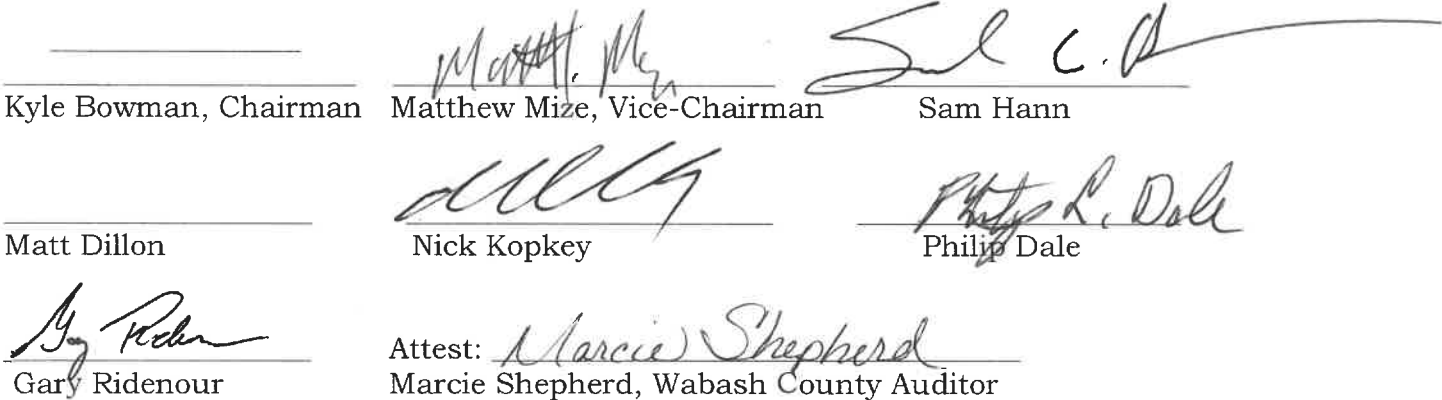 Matt Mize Sam C. Hann
Kyle Bowman, Chairman Matthew Mize, Vice-Chairman Sam Hann
Philip L. Dale
Matt Dillon Nick Kopkey Philip Dale
Gary Ridenour Attest: Marcie Shepherd
Gary Ridenour Marcie Shepherd, Wabash County Auditor